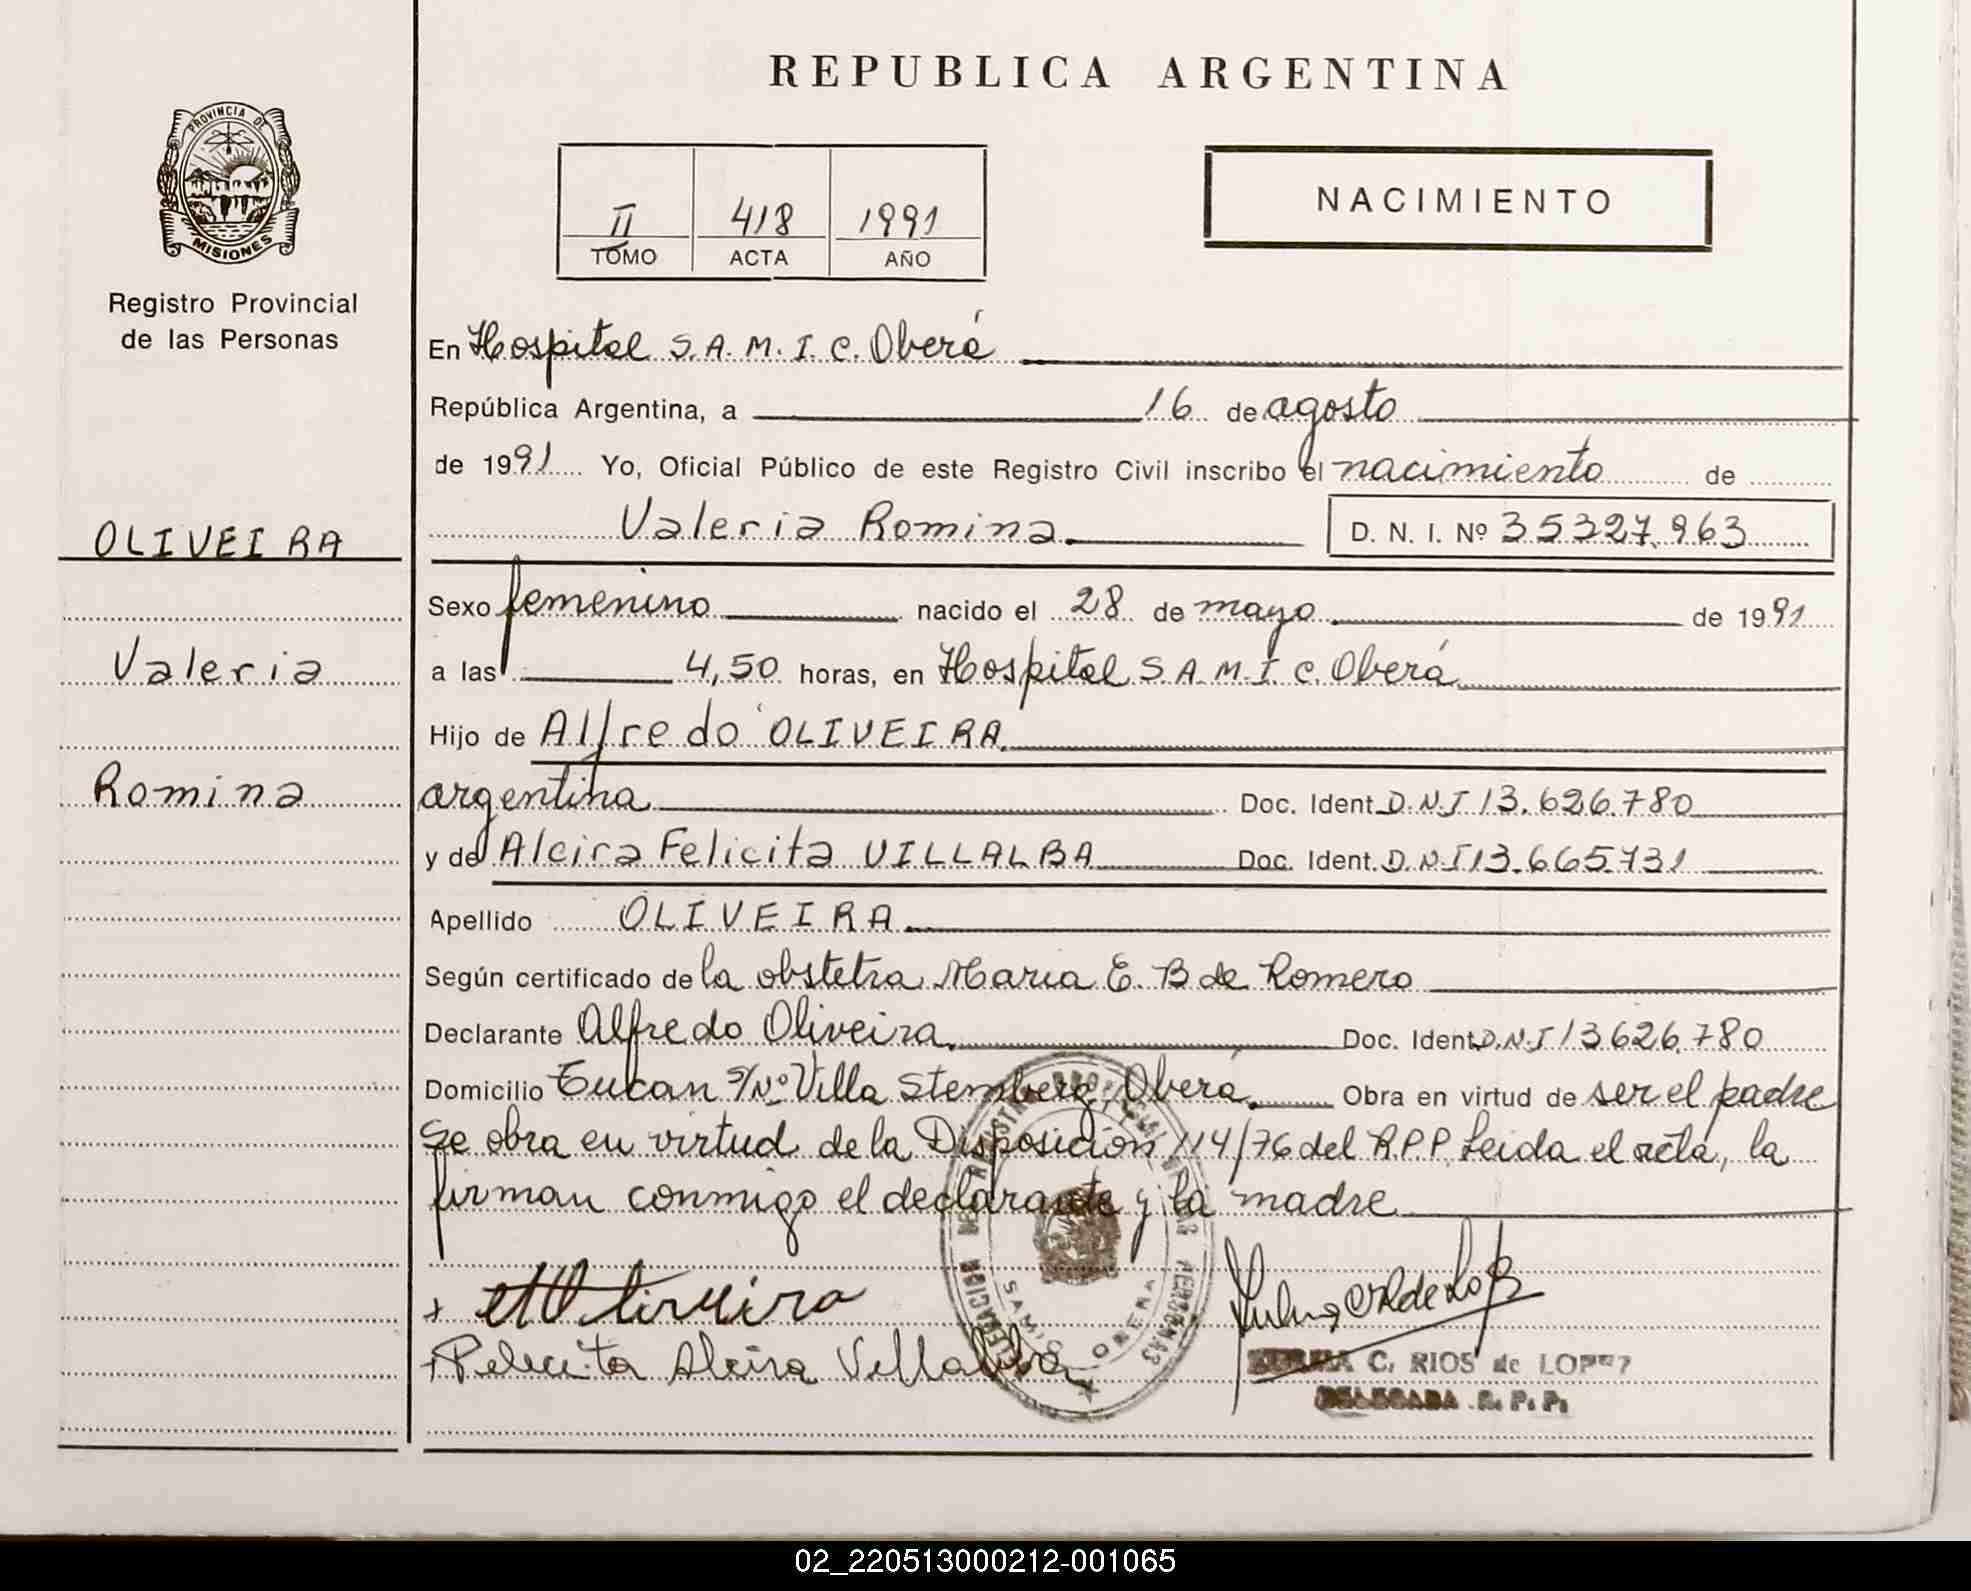 REPUBLICA ARGENTINA
PROVINCIA DE
MISIONES
Registro Provincial
de las Personas
II 418 1991
TOMO ACTA AÑO
NACIMIENTO
OLIVEIRA
Valeria
Romina
En Hospital S.A.M.I.C. Oberá
República Argentina, a 16 de agosto
de 1991 Yo, Oficial Público de este Registro Civil inscribo el nacimiento de
Valeria Romina D. N. I. Nº 35327.963
Sexo femenino nacido el 28 de mayo de 1991
a las 4,50 horas, en Hospital S.A.M.I.C. Oberá
Hijo de Alfredo OLIVEIRA
argentina Doc. Ident. D.N.I 13.626.780
y de Alcira Felicita VILLALBA Doc. Ident. D.N.I 13.665.731
Apellido OLIVEIRA
Según certificado de la obstetra Maria E. B de Romero
Declarante Alfredo Oliveira Doc. Ident D.N.I 13626.780
Domicilio Tucan S/Nº Villa Stemberg, Oberá. Obra en virtud de ser el padre
Se obra en virtud de la Disposición 114/76 del R.P.P. Leida el acta, la
firman conmigo el declarante y la madre
Felicita Alcira Villalba
C. RIOS de LOPEZ
DELEGADA R. P. P.
02_220513000212-001065